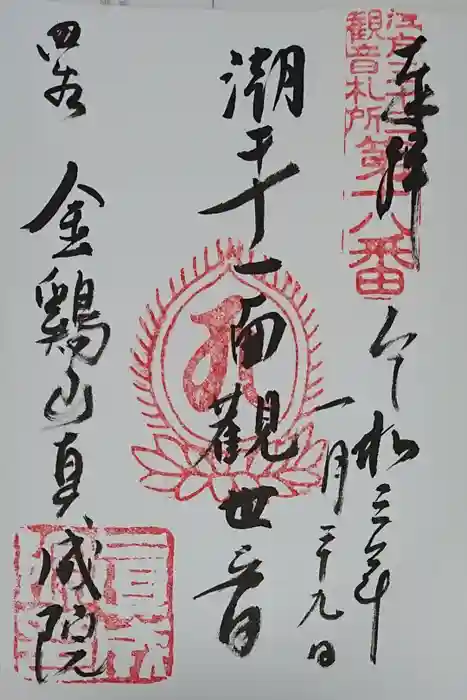 奉拝
江戸三十三
観音札所
第十八番
令和三年
一月二十九日
潮干十一面觀世音
四谷
金鶏山真成院